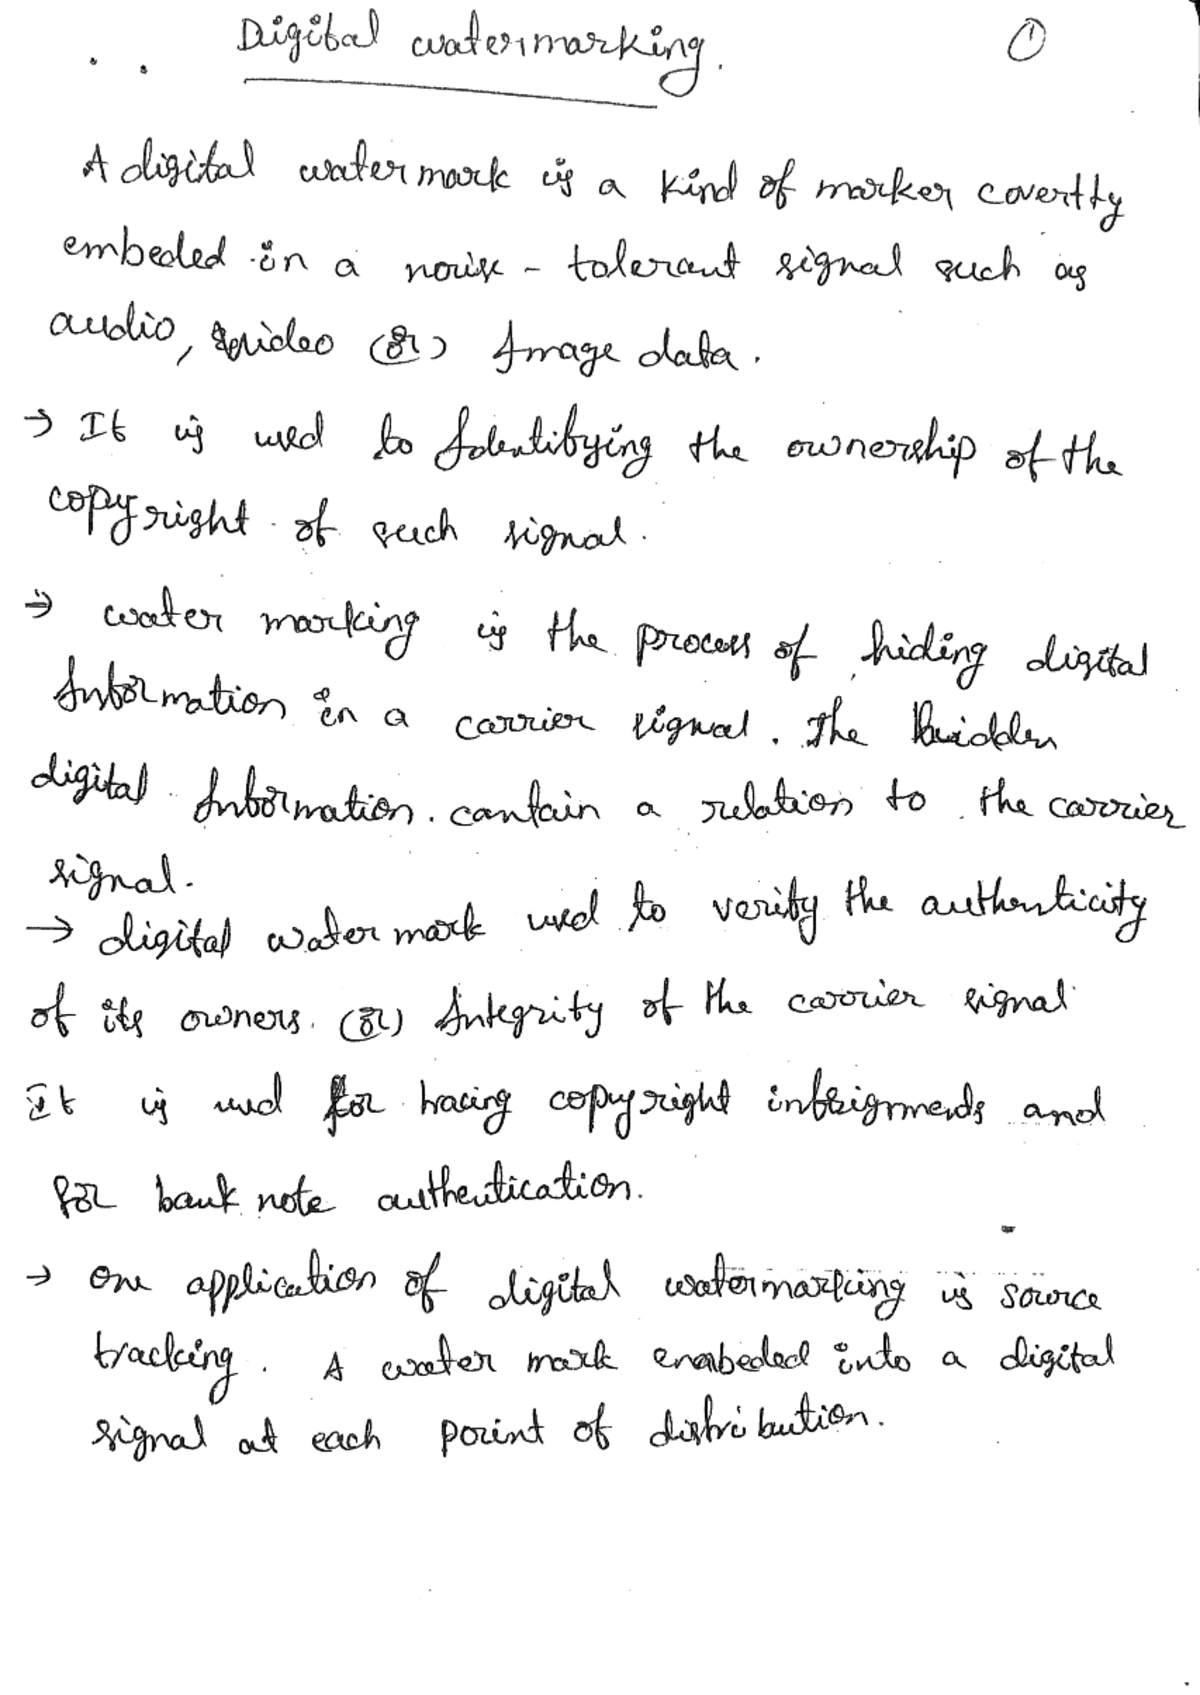 Digital watermarking.
1
A digital watermark is a kind of marker covertly
embeded in a noise - tolerant signal such as
audio, video (or) Image data.
→ It is used to Identifying the ownership of the
copyright of such signal.
→ water marking is the process of hiding digital
Information in a carrier signal. The hidden
digital Information. contain a relation to the carrier
signal.
→ digital water mark used to verify the authenticity
of its owners. (or) Integrity of the carrier signal
It is used for tracing copyright infrignments and
for bank note authentication.
→ One application of digital watermarking is source
tracking. A water mark embeded into a digital
signal at each point of distribution.